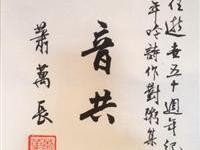 遊五十週年紀
年吟詩作對徵集
音共
蕭萬長